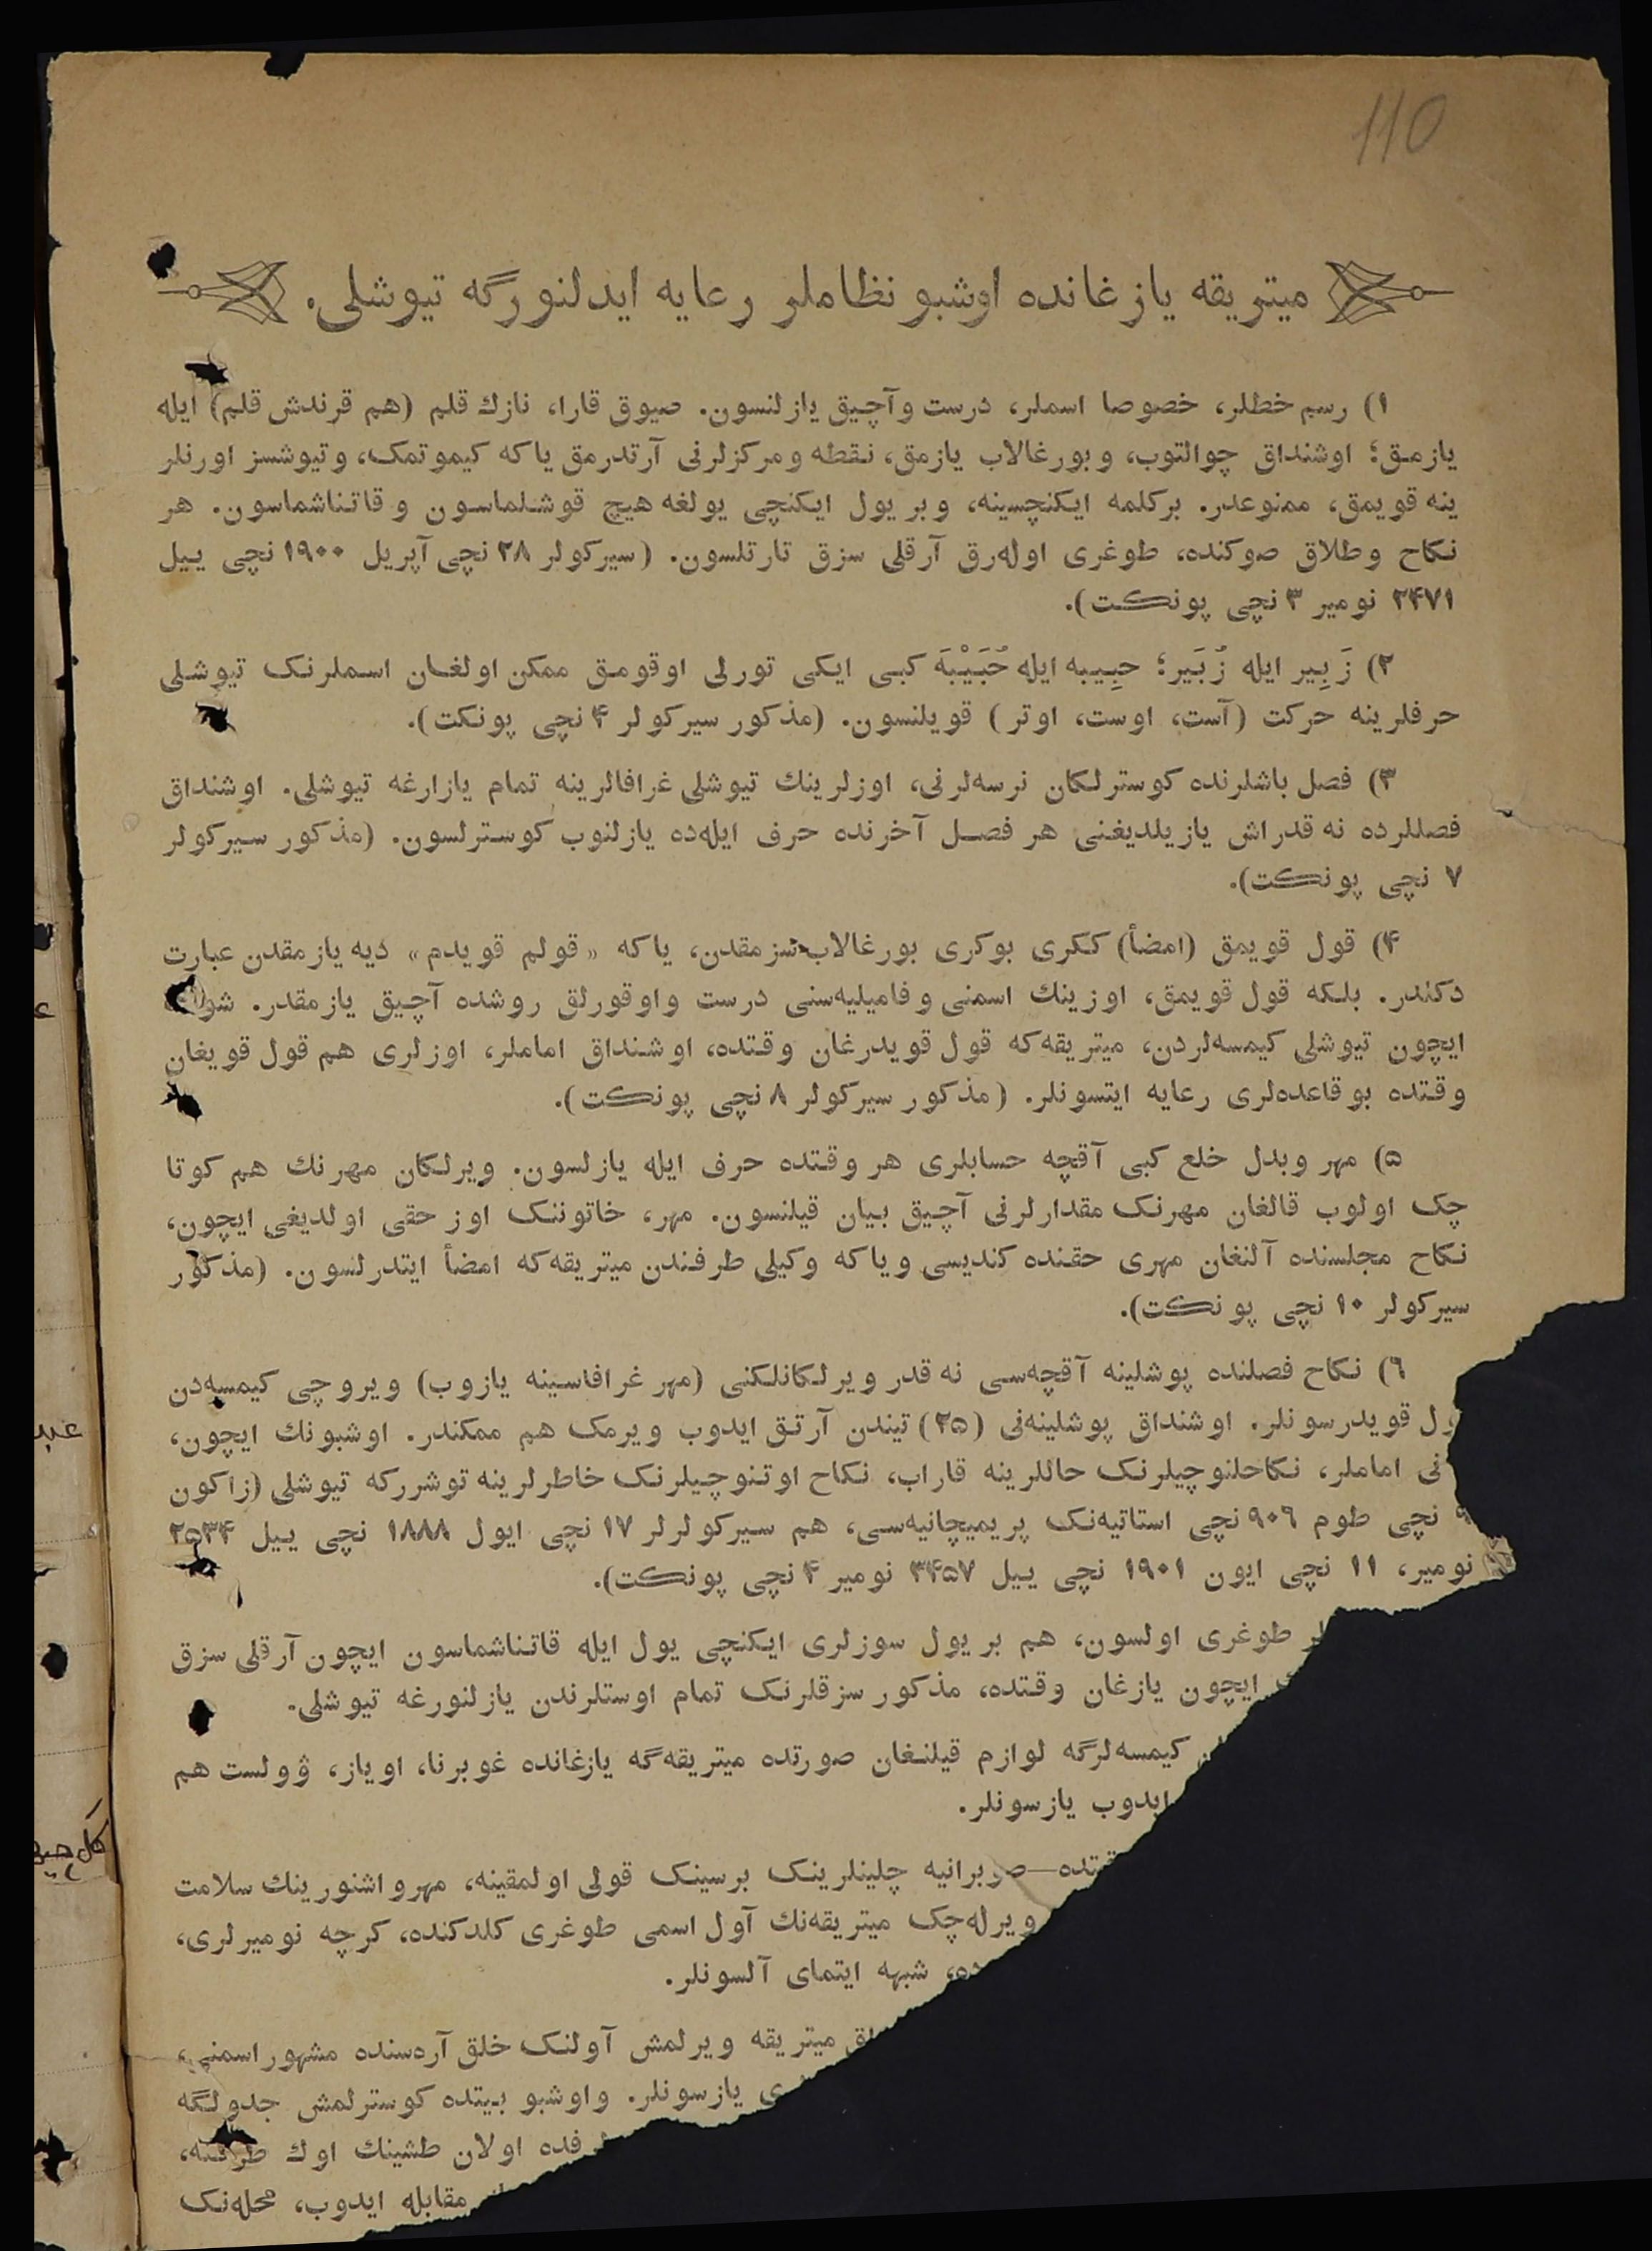 110
ميتريقه يازغانده اوشبو نظاملر رعايه ايدلنورگه تيوشلى.
۱) رسم خطلر، خصوصا اسملر، درست و آچيق يازلنسون. صيوق قارا، نازك قلم (هم قرندش قلم) ايله
يازمق؛ اوشنداق چوالتوب، و بورغالاب يازمق، نقطه و مركزلرنى آرتدرمق ياكه كيموتمك، و تيوشسز اورنلر
ينه قويمق، ممنوعدر. بركلمه ايكنچسينه، و بر يول ايكنچى يولغه هيچ قوشلماسون و قاتناشماسون. هر
نكاح و طلاق صوكنده، طوغرى اوله‌رق آرقلى سزق تارتلسون. (سيركولر ۲۸ نچى آپريل ۱۹۰۰ نچى ييل
۲۴۷۱ نومير ۳ نچى پونكت).
۲) زَبِير ايله زُبَير؛ حبِيبه ايله حُبَيْبَه كبى ايكى تورلى اوقومق ممكن اولغان اسملرنك تيوشلى
حرفلرينه حركت (آست، اوست، اوتر) قويلنسون. (مذكور سيركولر ۴ نچى پونكت).
۳) فصل باشلرنده كوسترلكان نرسه‌لرنى، اوزلرينك تيوشلى غرافالرينه تمام يازارغه تيوشلى. اوشنداق
فصللرده نه قدراش يازيلديغنى هر فصل آخرنده حرف ايله‌ده يازلنوب كوسترلسون. (مذكور سيركولر
۷ نچى پونكت).
۴) قول قويمق (امضأ) ككرى بوكرى بورغالاب سزمقدن، ياكه «قولم قويدم» ديه يازمقدن عبارت
دكلدر. بلكه قول قويمق، اوزينك اسمنى و فاميليه‌سنى درست و اوقورلق روشده آچيق يازمقدر.
ايچون تيوشلى كيمسه‌لردن، ميتريقه‌كه قول قويدرغان وقتده، اوشنداق اماملر، اوزلرى هم قول قويغان
وقتده بو قاعده‌لرى رعايه ايتسونلر. (مذكور سيركولر ۸ نچى پونكت).
۵) مهر و بدل خلع كبى آقچه حسابلرى هر وقتده حرف ايله يازلسون. ويرلكان مهرنك هم كوتا
چك اولوب قالغان مهرنك مقدارلرنى آچيق بيان قيلنسون. مهر، خاتوننك اوز حقى اولديغى ايچون،
نكاح مجلسنده آلنغان مهرى حقنده كنديسى و ياكه وكيلى طرفندن ميتريقه‌كه امضأ ايتدرلسون. (مذكور
سيركولر ۱۰ نچى پونكت).
۶) نكاح فصلنده پوشلينه آقچه‌سى نه قدر ويرلكانلكنى (مهر غرافاسينه يازوب) ويروچى كيمسه‌دن
ول قويدرسونلر. اوشنداق پوشلينه‌نى (۲۵) تيندن آرتق ايدوب ويرمك هم ممكندر. اوشبونك ايچون،
نى اماملر، نكاحلنوچيلرنك حاللرينه قاراب، نكاح اوتنوچيلرنك خاطرلرينه توشرركه تيوشلى (زاكون
نچى طوم ۹۰۶ نچى استاتيه‌نك پريميچانيه‌سى، هم سيركولرلر ۱۷ نچى ايول ۱۸۸۸ نچى ييل ۲۵۳۴
نومير، ۱۱ نچى ايون ۱۹۰۱ نچى ييل ۳۴۵۷ نومير ۴ نچى پونكت).
لر طوغرى اولسون، هم بر يول سوزلرى ايكنچى يول ايله قاتناشماسون ايچون آرقلى سزق
ايچون يازغان وقتده، مذكور سزقلرنك تمام اوستلرندن يازلنورغه تيوشلى.
كيمسه‌لرگه لوازم قيلنغان صورتده ميتريقه‌گه يازغانده غوبرنا، اوياز، ۋولست هم
ايدوب يازسونلر.
قتده—صوبرانيه چلينلرينك برسينك قولى اولمقينه، مهر و اشنورينك سلامت
ويرله‌چك ميتريقه‌نك آول اسمى طوغرى كلدكنده، كرچه نوميرلرى،
ده، شبهه ايتماى آلسونلر.
لق ميتريقه ويرلمش آولنك خلق آره‌سنده مشهور اسمنى،
ى يازسونلر. و اوشبو بيتده كوسترلمش جدولگه
فده اولان طشينك اوك طرفينه،
مقابله ايدوب، محله‌نك